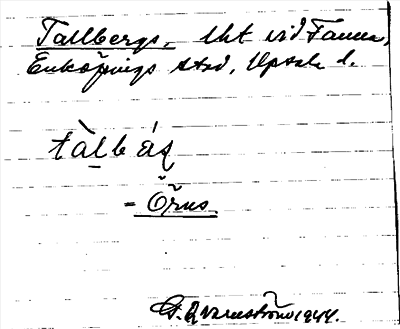 Tallbergs, Uht vid Fanna,
Enköpings stad, Upsala l.
tàlbáʂ
- Örus
F. Q. Wennström 1944.